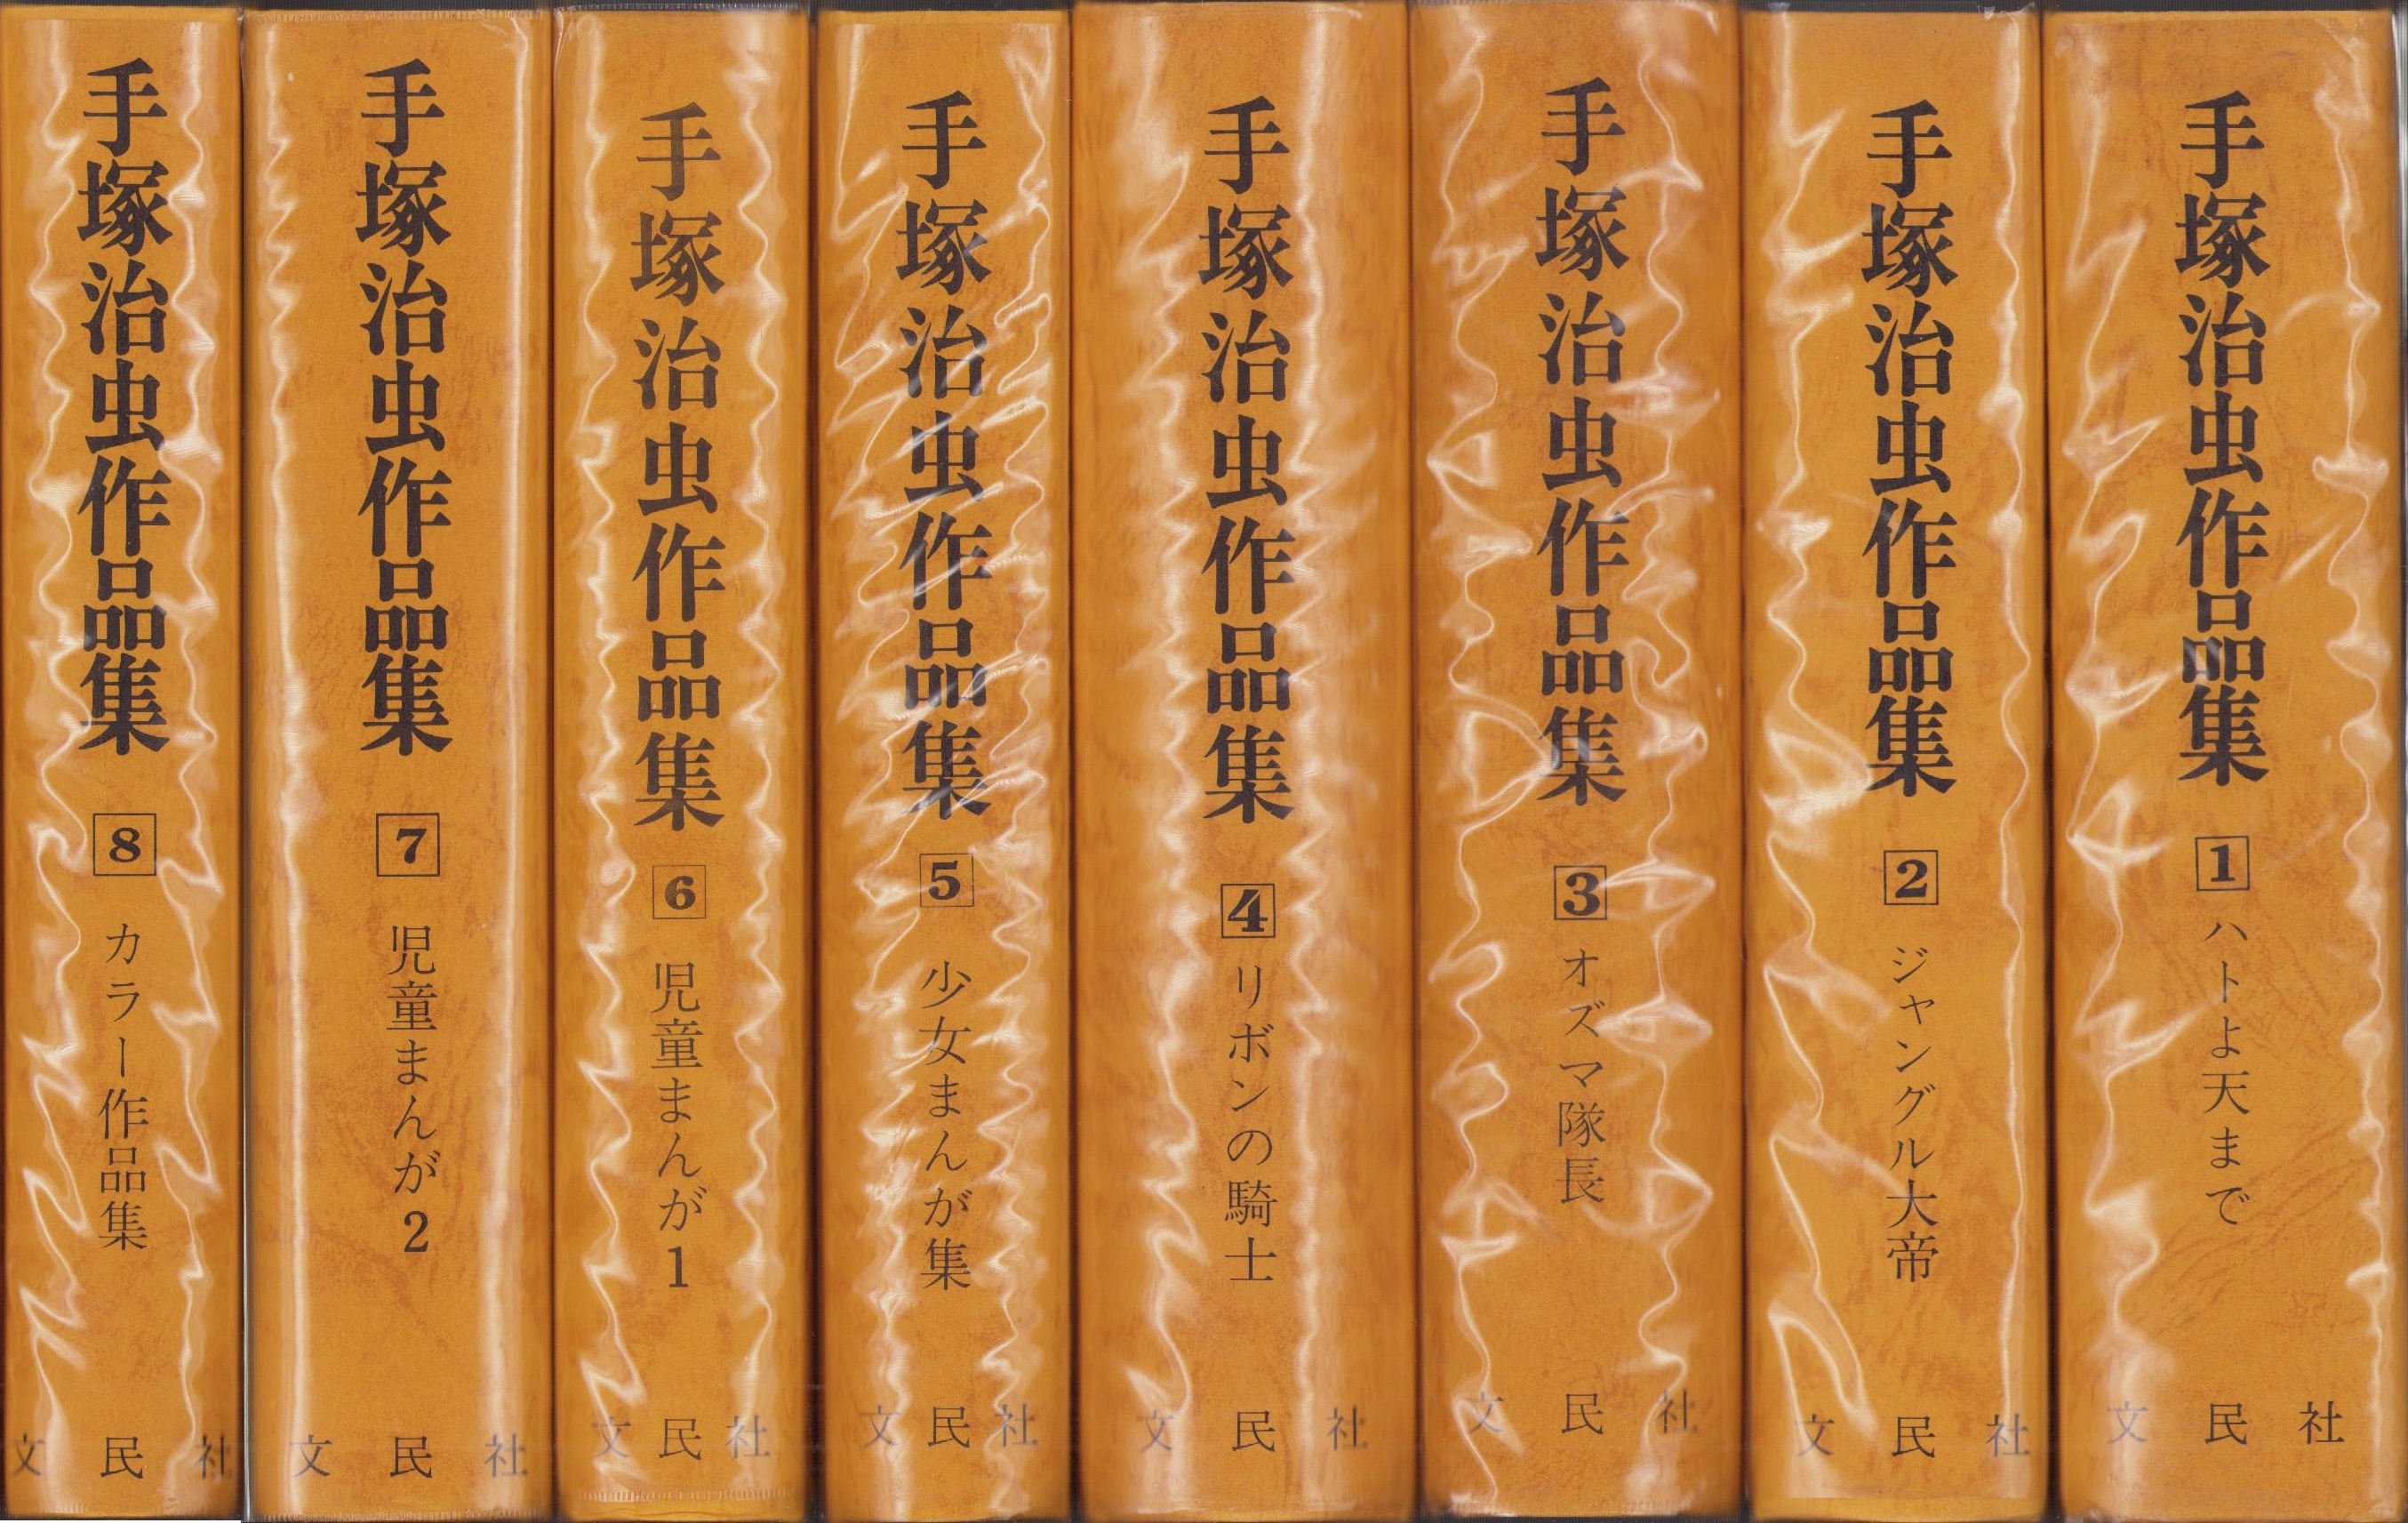 手塚治虫作品集 1 ハトよ天まで
文民社
手塚治虫作品集 2 ジャングル大帝
文民社
手塚治虫作品集 3 オズマ隊長
文民社
手塚治虫作品集 4 リボンの騎士
文民社
手塚治虫作品集 5 少女まんが集
文民社
手塚治虫作品集 6 児童まんが1
文民社
手塚治虫作品集 7 児童まんが2
文民社
手塚治虫作品集 8 カラー作品集
文民社